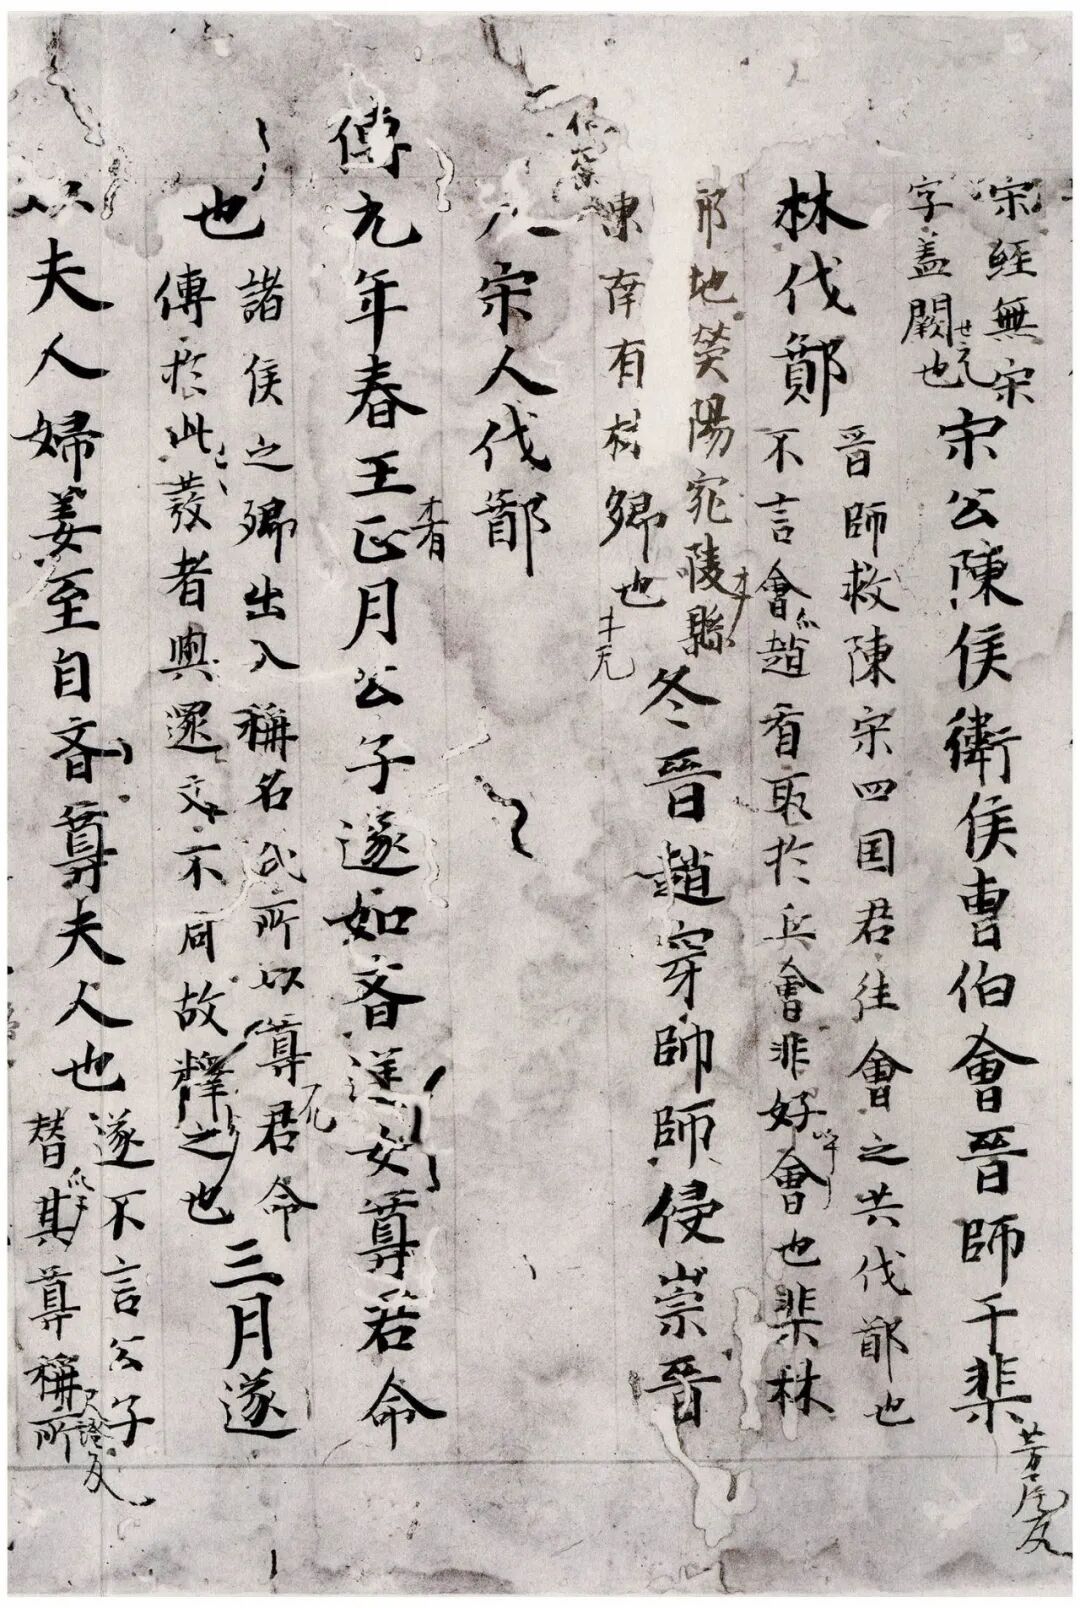 宋經無宋
字盖闕也
宋公陳侯衛侯曹伯會晉師于棐
芳尾反
林伐鄭
晉師救陳宋四国君往會之共伐鄭也
不言會趙盾取於兵會非好會也棐林
鄭地熒陽宛陵縣
東南有林鄉也
冬晉趙穿師師侵崇晉
人宋人伐鄭
傳元年春王正月公子遂如齊逆女尊君命
也
諸侯之卿出入稱名氏所以尊君命
傳於此發者與還文不同故釋之也
三月遂
以夫人婦姜至自齊尊夫人也
遂不言公子
替其尊稱所